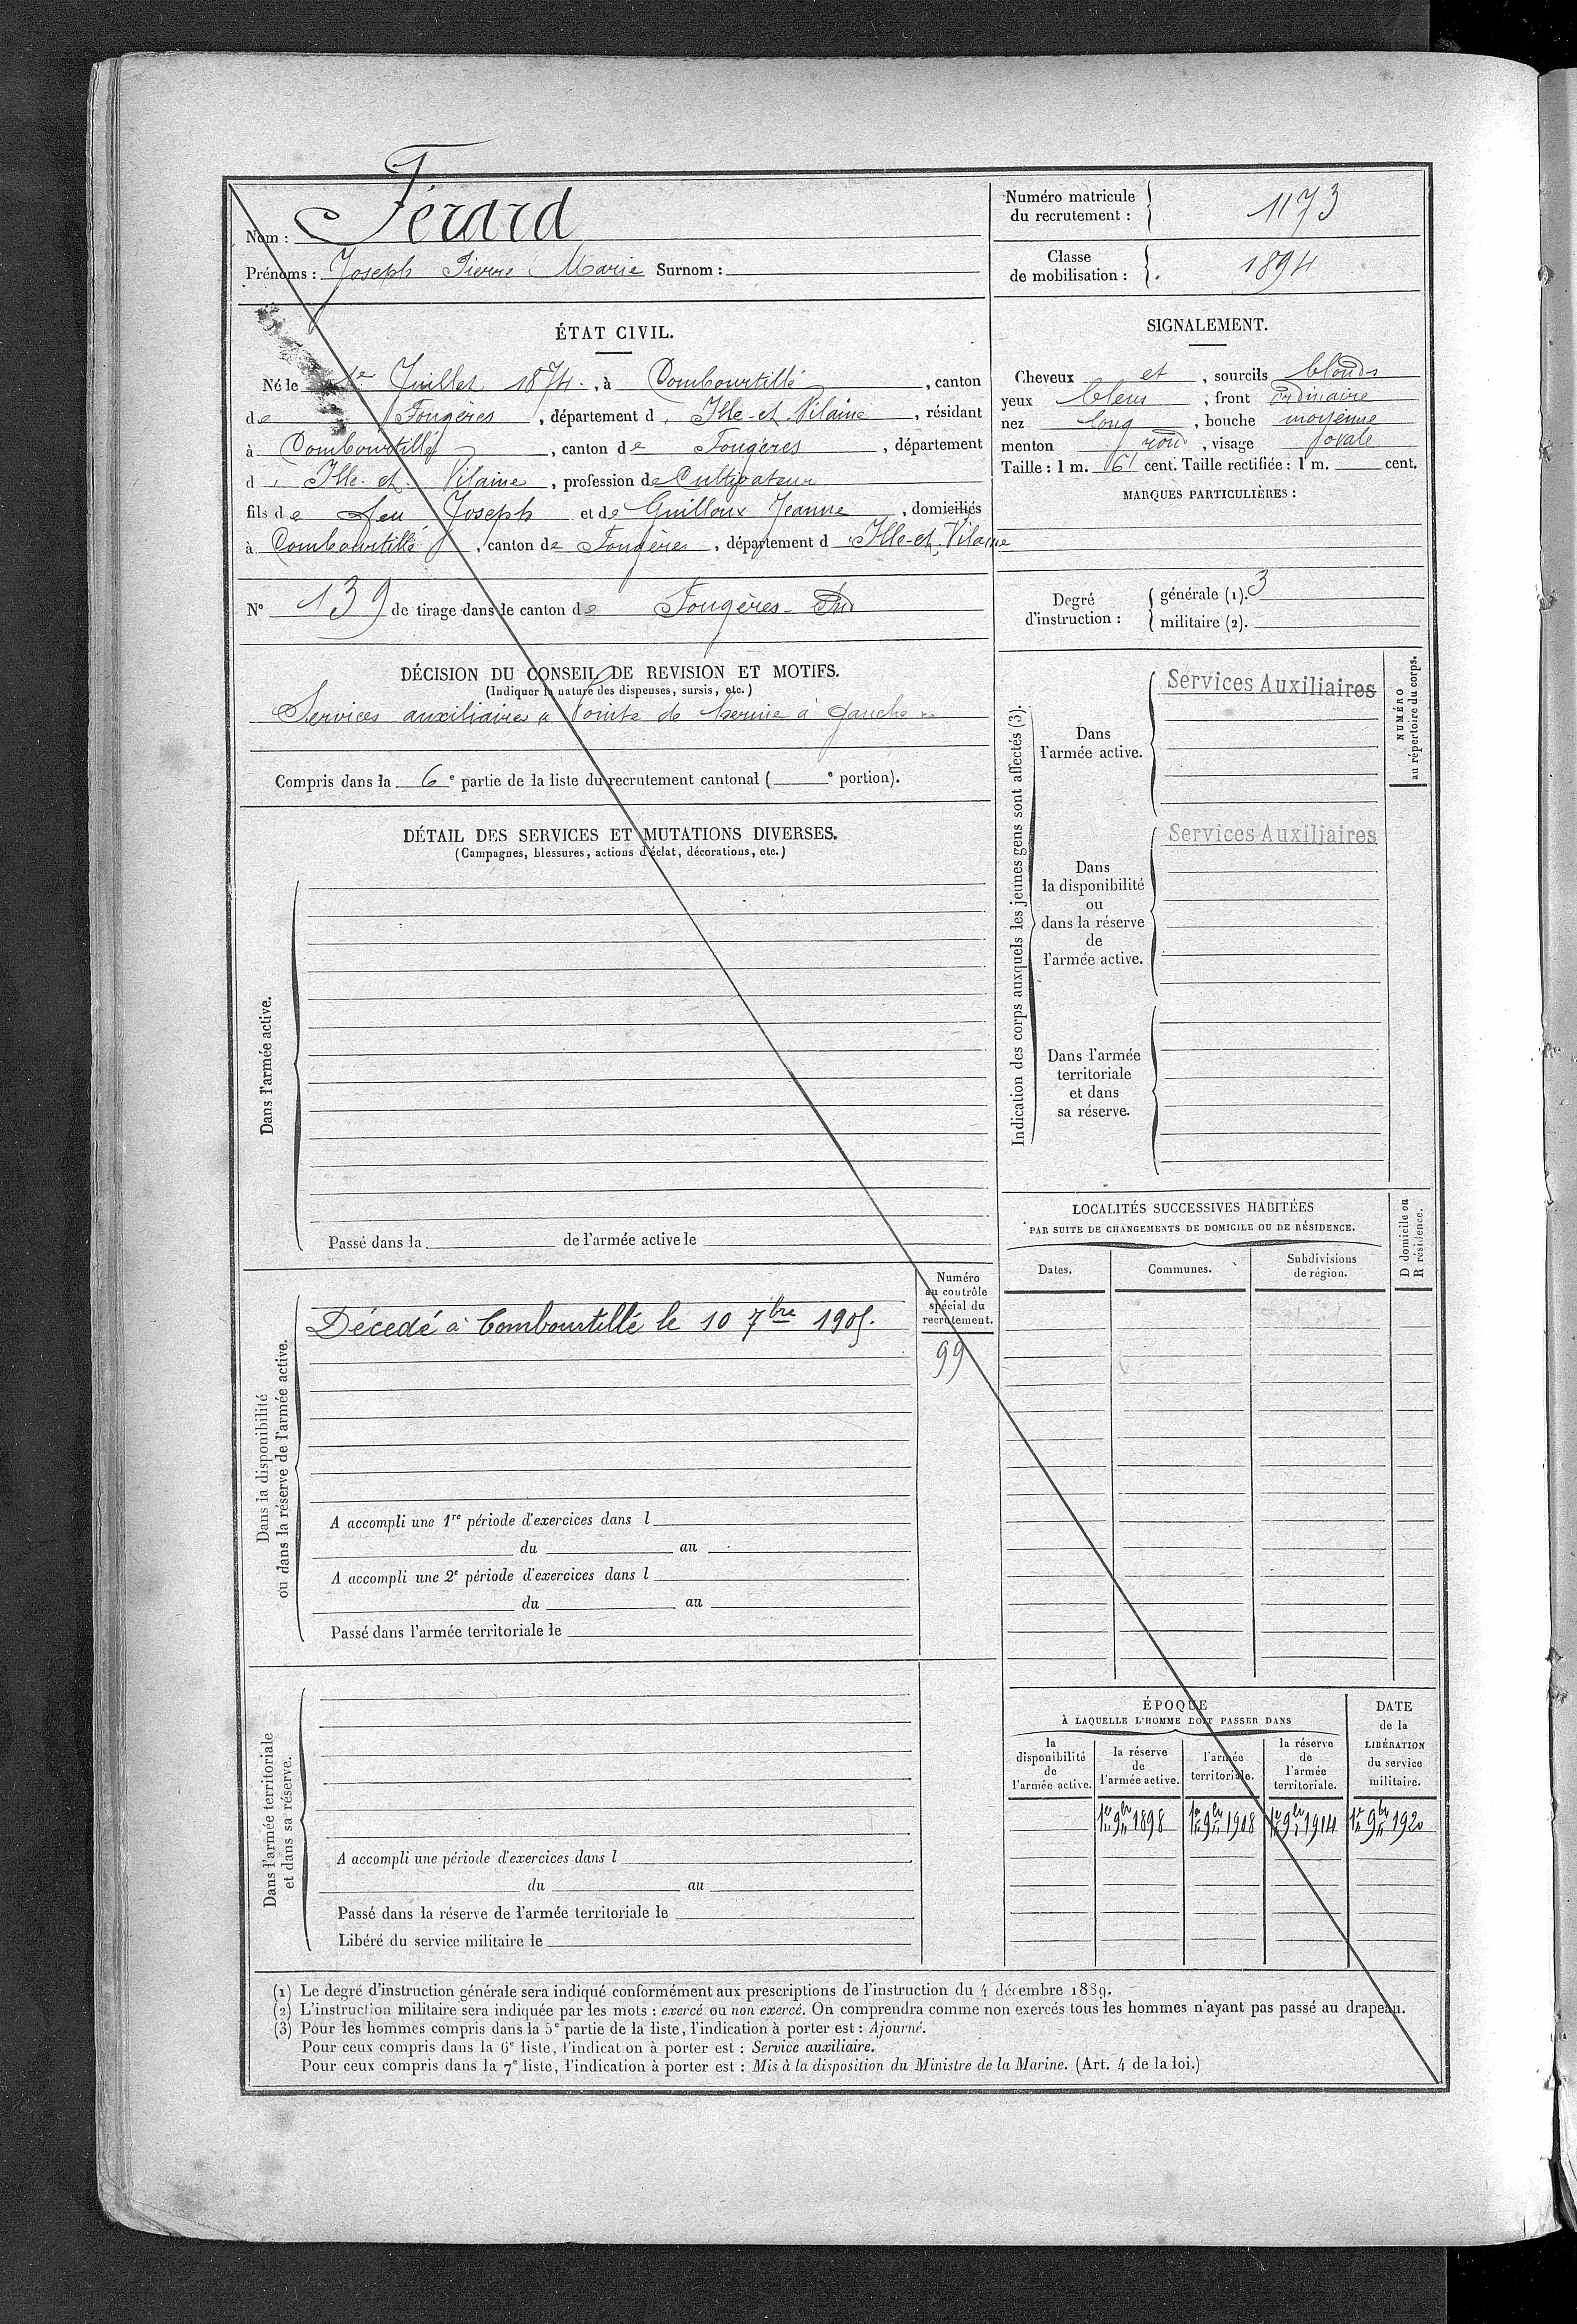 Nom : Férard
Prénoms : Joseph Pierre Marie Surnom :
Numéro matricule du recrutement : 1173
Classe de mobilisation : 1894
ÉTAT CIVIL.
Né le 1er Juillet 1874, à Combourtillé, canton
de Fougères, département d' Ille-et-Vilaine, résidant
à Combourtillé, canton de Fougères, département
d' Ille-et-Vilaine, profession de Cultivateur
fils de feu Joseph et de Guilloux Jeanne, domiciliés
à Combourtillé, canton de Fougères, département d' Ille-et-Vilaine
N° 139 de tirage dans le canton de Fougères-Sud
SIGNALEMENT.
Cheveux et, sourcils blonds
yeux bleus, front ordinaire
nez long, bouche moyenne
menton rond, visage ovale
Taille : 1 m. 61 cent. Taille rectifiée : 1 m. cent.
MARQUES PARTICULIÈRES :
Degré d'instruction :
générale (1). 3
militaire (2).
DÉCISION DU CONSEIL DE REVISION ET MOTIFS.
(Indiquer la nature des dispenses, sursis, etc.)
Services auxiliaires « Pointe de hernie à gauche »
Compris dans la 6e partie de la liste du recrutement cantonal ( e portion).
DÉTAIL DES SERVICES ET MUTATIONS DIVERSES.
(Campagnes, blessures, actions d'éclat, décorations, etc.)
Dans l'armée active.
Passé dans la de l'armée active le
Indication des corps auxquels les jeunes gens sont affectés (3).
Dans
l'armée active.
Services Auxiliaires
Dans
la disponibilité
ou
dans la réserve
de
l'armée active.
Services Auxiliaires
Dans l'armée
territoriale
et dans
sa réserve.
NUMÉRO
au répertoire du corps.
LOCALITÉS SUCCESSIVES HABITÉES
PAR SUITE DE CHANGEMENTS DE DOMICILE OU DE RÉSIDENCE.
Dates.
Communes.
Subdivisions
de région.
D domicile ou
R résidence.
Dans la disponibilité
ou dans la réserve de l'armée active.
Numéro
au contrôle
spécial du
recrutement.
Décedé à Combourtillé le 10 7bre 1905.
99
A accompli une 1re période d'exercices dans l
du au
A accompli une 2e période d'exercices dans l
du au
Passé dans l'armée territoriale le
Dans l'armée territoriale
et dans sa réserve.
A accompli une période d'exercices dans l
du au
Passé dans la réserve de l'armée territoriale le
Libéré du service militaire le
ÉPOQUE
À LAQUELLE L'HOMME DOIT PASSER DANS
la
disponibilité
de
l'armée active.
la réserve
de
l'armée active.
l'armée
territoriale.
la réserve
de
l'armée
territoriale.
DATE
de la
LIBÉRATION
du service
militaire.
1er 9bre 1898
1er 9bre 1908
1er 9bre 1914
1er 9bre 1920
(1) Le degré d'instruction générale sera indiqué conformément aux prescriptions de l'instruction du 4 décembre 1889.
(2) L'instruction militaire sera indiquée par les mots : exercé ou non exercé. On comprendra comme non exercés tous les hommes n'ayant pas passé au drapeau.
(3) Pour les hommes compris dans la 5e partie de la liste, l'indication à porter est : Ajourné.
Pour ceux compris dans la 6e liste, l'indication à porter est : Service auxiliaire.
Pour ceux compris dans la 7e liste, l'indication à porter est : Mis à la disposition du Ministre de la Marine. (Art. 4 de la loi.)